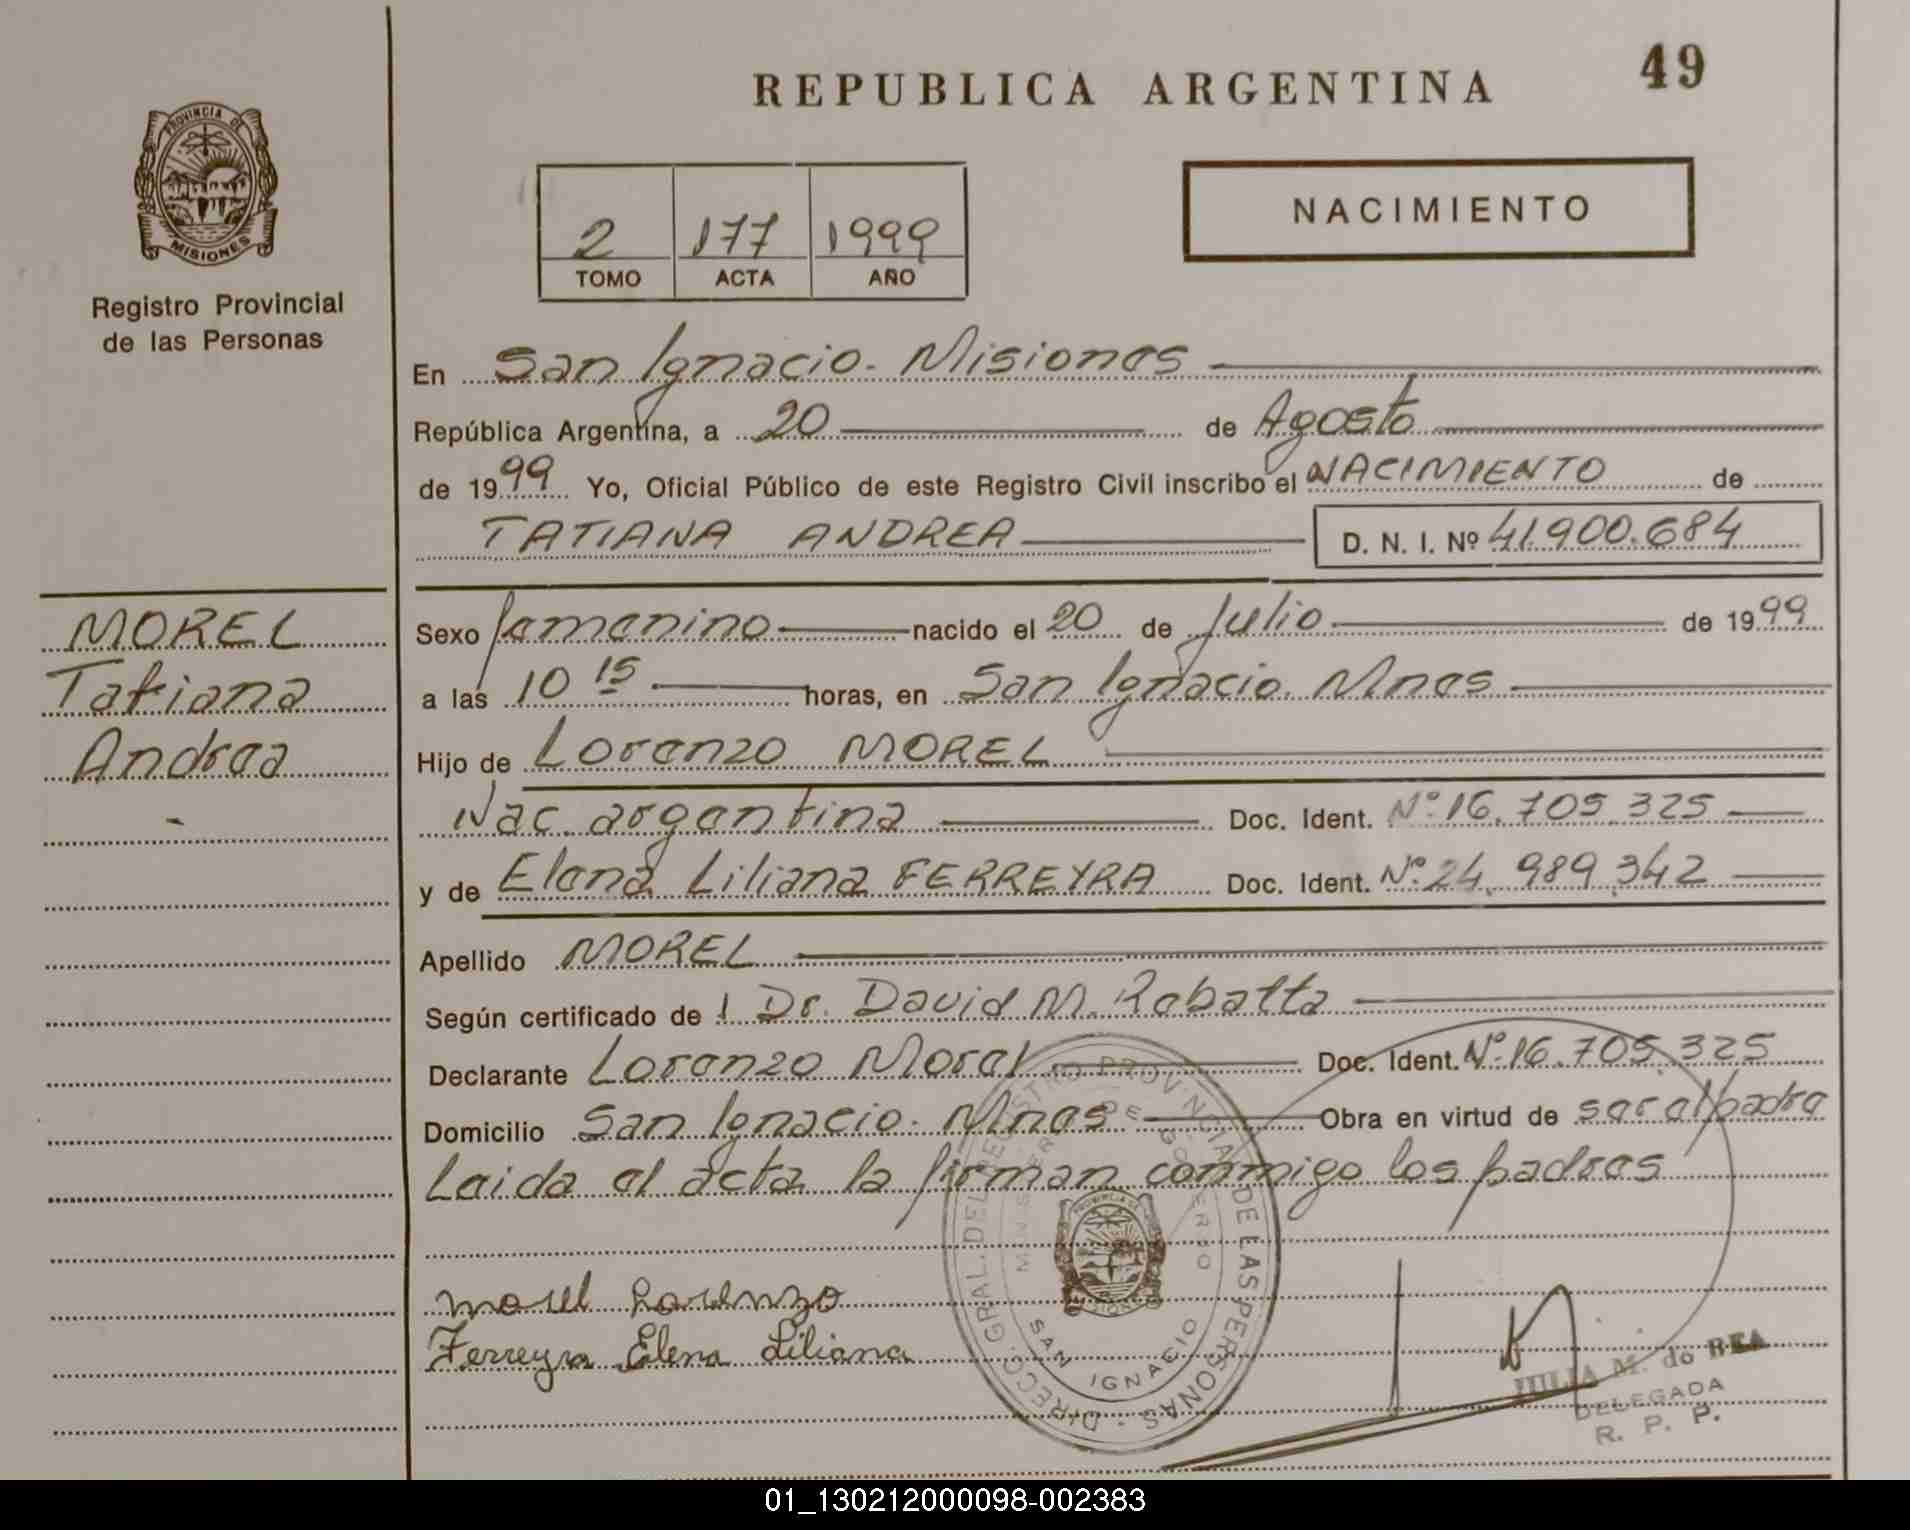 REPUBLICA ARGENTINA
49
PROVINCIA DE
MISIONES
Registro Provincial
de las Personas
2 177 1999
TOMO ACTA AÑO
NACIMIENTO
En San Ignacio. Misiones
República Argentina, a 20 de Agosto
de 1999 Yo, Oficial Público de este Registro Civil inscribo el NACIMIENTO de
TATIANA ANDREA D. N. I. Nº 41.900.684
MOREL
Tatiana
Andrea
Sexo femenino nacido el 20 de Julio de 1999
a las 10 15 horas, en San Ignacio. Mnes
Hijo de Lorenzo MOREL
Nac. argentina Doc. Ident. Nº 16.705.325
y de Elena Liliana FERREYRA Doc. Ident. Nº 24.989.342
Apellido MOREL
Según certificado de Dr. David M. Rebatta
Declarante Lorenzo Morel Doc. Ident. Nº 16.705.325
Domicilio San Ignacio. Mnes Obra en virtud de ser el padre
Leida el acta la firman conmigo los padres
Morel Lorenzo
Ferreyra Elena Liliana
DIRECC. GRAL. DEL REGISTRO PROVINCIAL DE LAS PERSONAS
MINISTERIO DE GOBIERNO
PROVINCIA DE
MISIONES
SAN IGNACIO
JULIA M. do REA
DELEGADA
R. P. P.
01_130212000098-002383